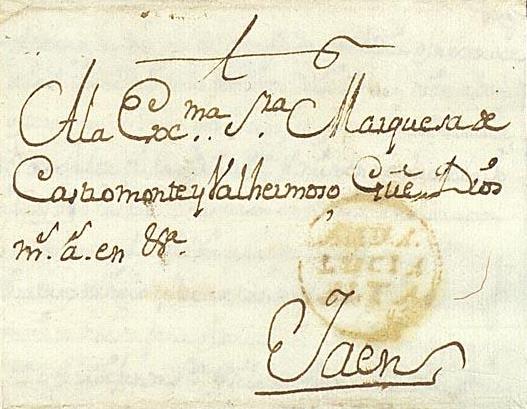 A la Exc.ma Sra Marquesa de
Castromonte y Valhermoso, Gue Dios
ms. as. en
ANDA.
LUCIA
Jaen